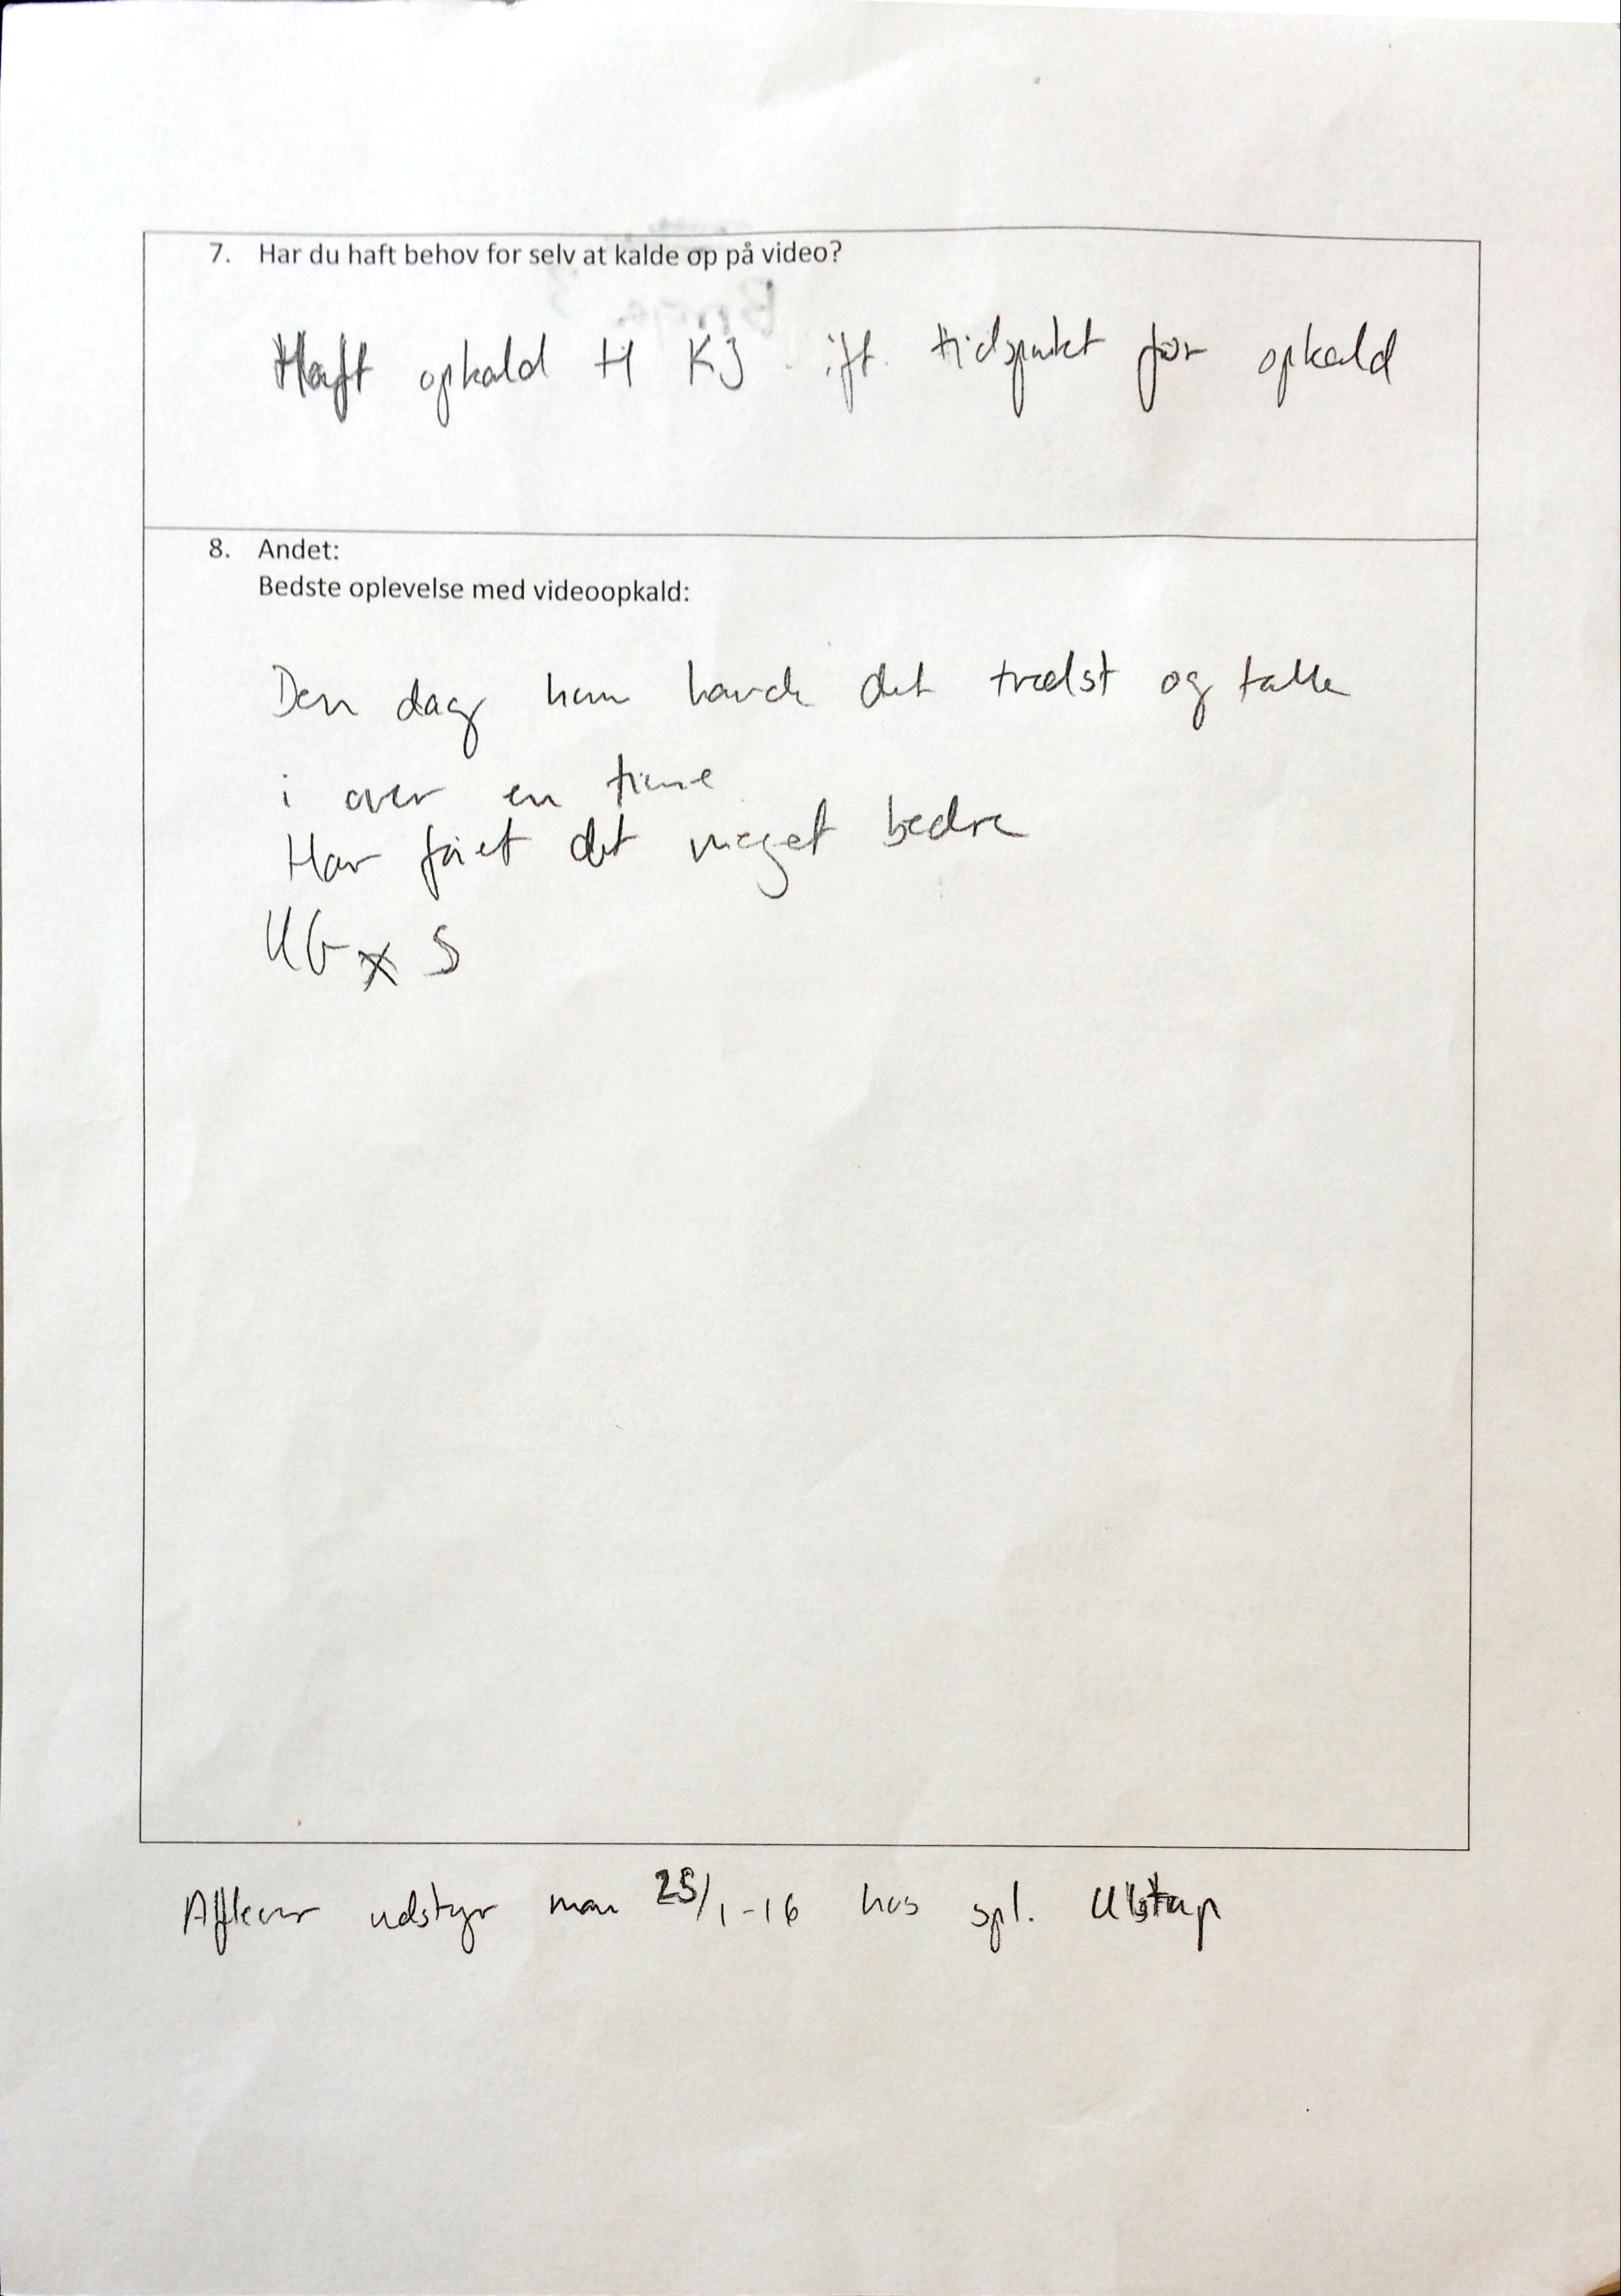 7. Har du haft behov for selv at kalde op på video?
Haft opkald H KJ ift. tidspunkt for opkald
8. Andet:
Bedste oplevelse med videoopkald:
Den dag han havde det træls og talte
i over en time
Har fået det meget bedre
UG x 5
Aflever udstyr man 25/1-16 hos spl.